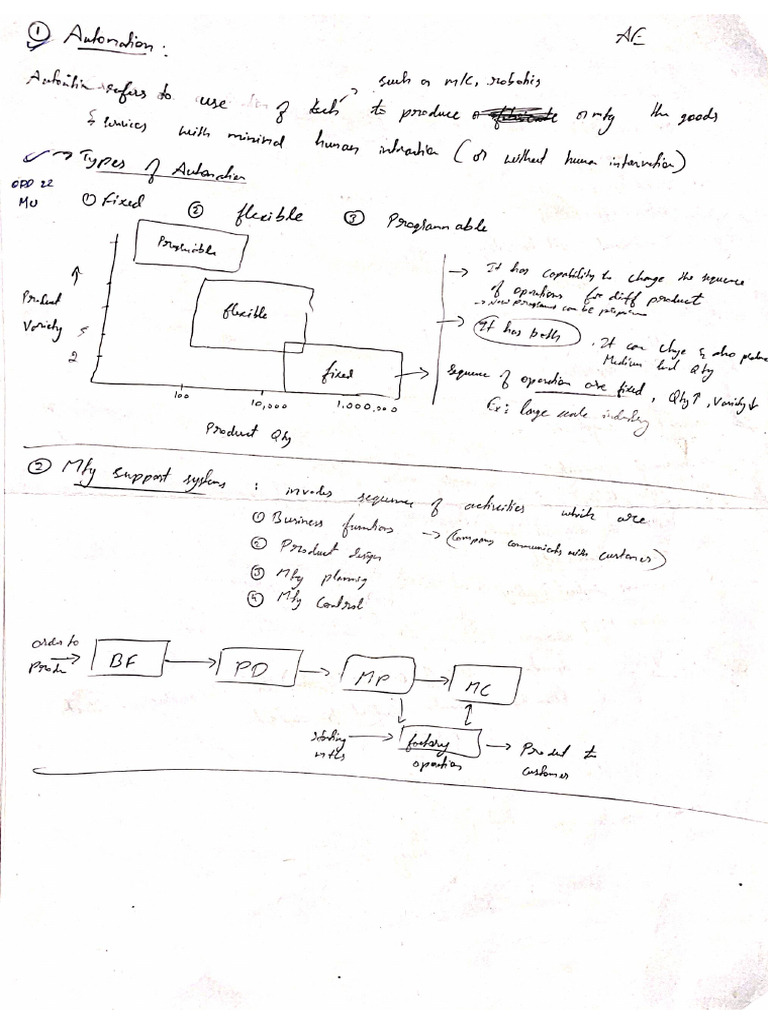 ① Automation :
AE
such as m/c, robotics
Automation refers to use of tech to produce or mfg the goods
& services with minimal human interaction (or without human intervention)
→ Types of Automation
ODD 22
MU
① Fixed ② flexible ③ Programmable
Product
Variety
2
Programable
flexible
fixed
100 10,000 1.000.000
Product Qty
→ It has capability to change the sequence
of operations for diff product
→ New programs can be
→ It has both. It can change & also
Medium Qty
→ sequence of operation are fixed, Qty↑, Variety↓
Ex: large scale industry
② Mfg support systems : involves sequence of activities which are
① Business functions → (company communicates with customer)
② Product design
③ Mfg planning
④ Mfg control
order to
BF → PD → MP → MC
starting
mtls
factory
operations
Product to
customer